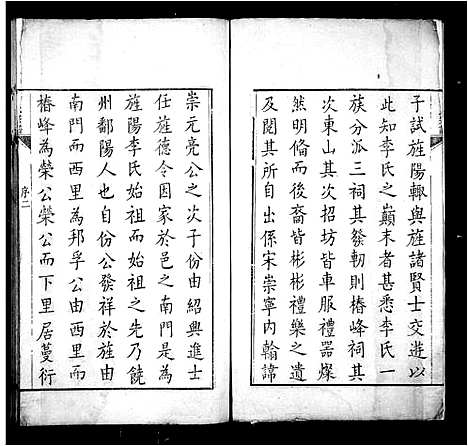 子試旌陽輙與旌諸賢士交遊以
此知李氏之巔末者甚悉李氏一
族分派三祠其發軔則椿峰祠其
次東山其次招坊皆車服禮器燦
然明備而後裔皆彬彬禮樂之遺
及閱其所自出係宋崇寧内翰諱
崇元亮公之次子份由紹興進士
任旌德令因家於邑之南門是為
旌陽李氏始祖而始祖之先乃饒
州鄱陽人也自份公發祥於旌由
南門而西里為邦孚公由西里而
椿峰為榮公榮公而下里居蔓衍
序二